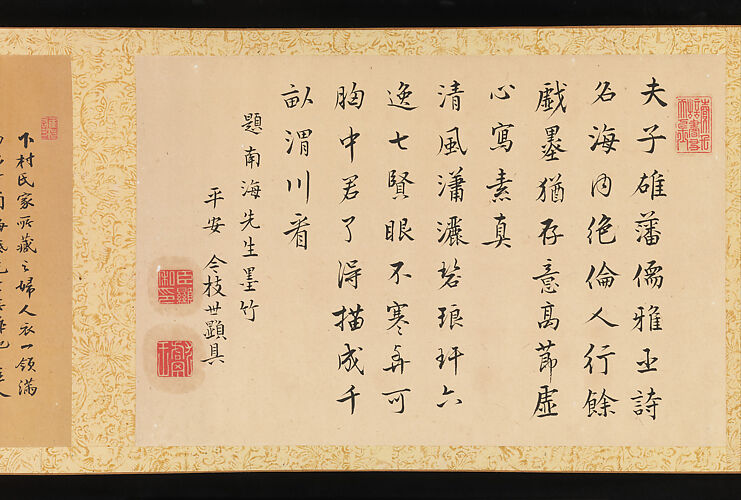 夫子雄藩儒雅丞詩
名海内絶倫人行餘
戯墨猶存意高節虚
心寫素真
清風瀟灑碧琅玕六
逸七賢眼不寒弄可
胸中君了得描成千
畝渭川看
題南海先生墨竹
平安 今枝世顕具
下村氏家所蔵之婦人衣一領満